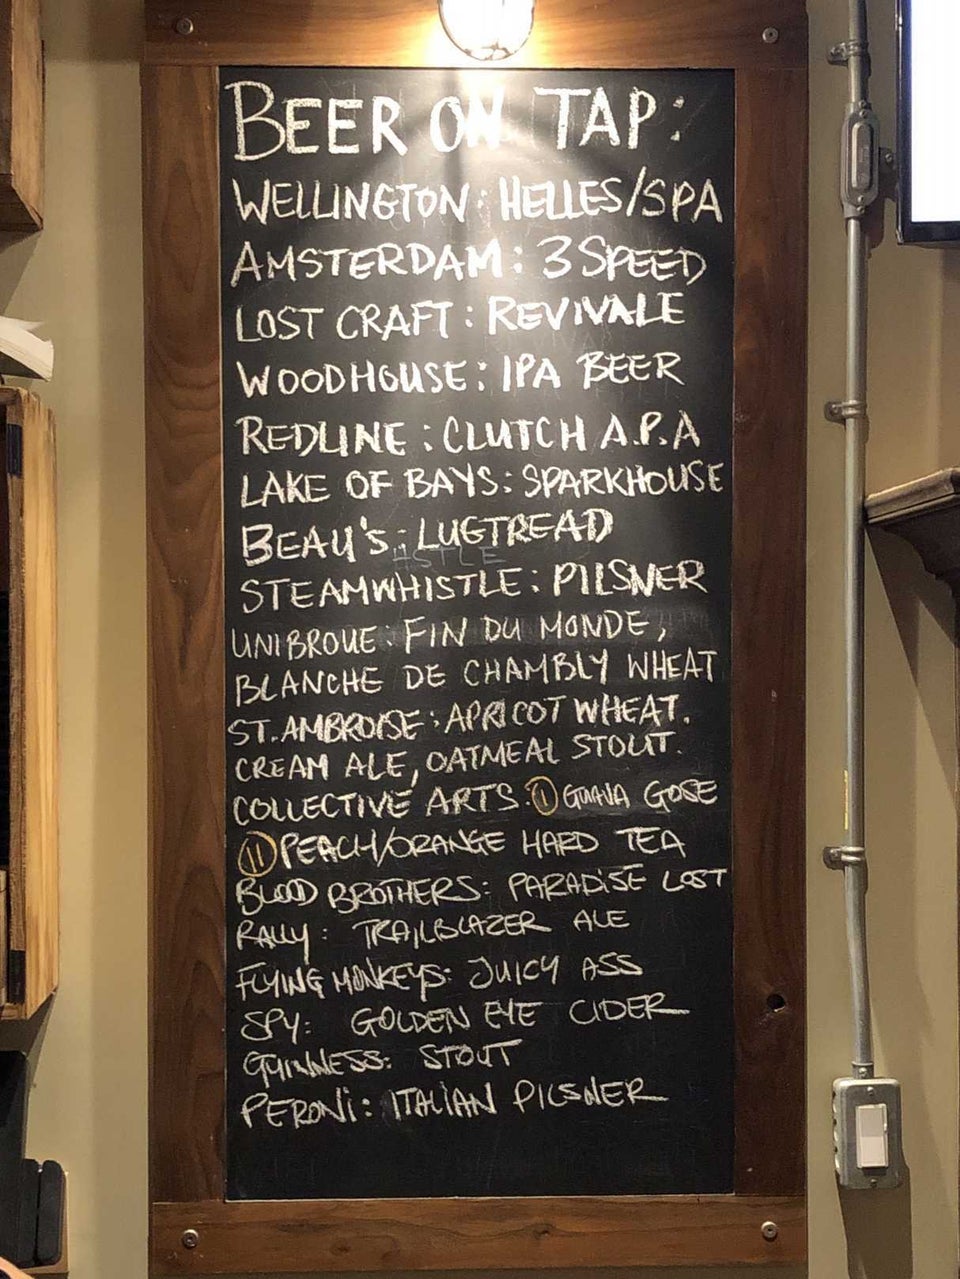 BEER ON TAP:
WELLINGTON: HELLES/SPA
AMSTERDAM: 3 SPEED
LOST CRAFT: REVIVALE
WOODHOUSE: IPA BEER
REDLINE: CLUTCH A.P.A
LAKE OF BAYS: SPARKHOUSE
BEAU'S: LUGTREAD
STEAMWHISTLE: PILSNER
UNIBROUE: FIN DU MONDE,
BLANCHE DE CHAMBLY WHEAT
ST. AMBROISE: APRICOT WHEAT.
CREAM ALE, OATMEAL STOUT.
COLLECTIVE ARTS: I GUAVA GOSE
II PEACH/ORANGE HARD TEA
BLOOD BROTHERS: PARADISE LOST
RALLY: TRAILBLAZER ALE
FLYING MONKEYS: JUICY ASS
SPY: GOLDEN EYE CIDER
GUINNESS: STOUT
PERONI: ITALIAN PILSNER